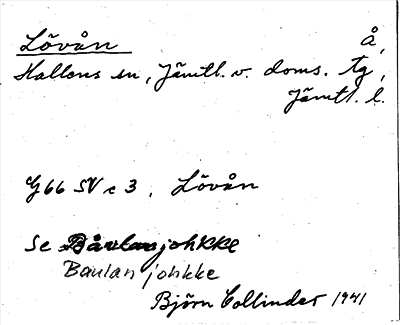 Lövån å,
Hallens sn, Jämtl. v. doms. tg,
Jämtl. l.
G66 SV c 3, Lövån
Se Båvlanjohkke
Baulanjohkke
Björn Collinder 1941